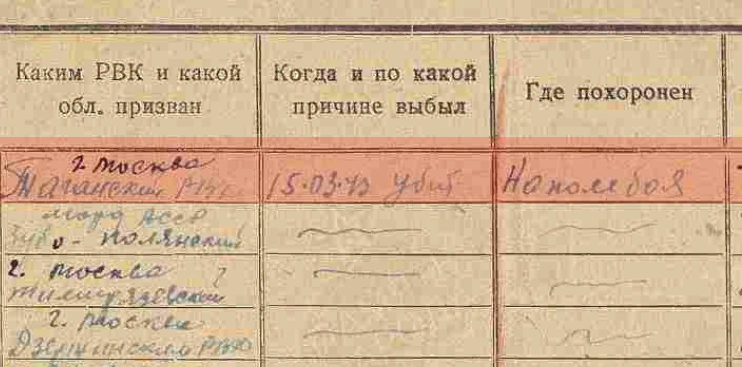 Каким РВК и какой
обл. призван
Когда и по какой
причине выбыл
Где похоронен
г. Москва
Таганский РВК
15.03.43 убит
На поле боя
морд АССР
Зубо-Полянский
г. Москва
Тимирязевский
г. Москва
Дзержинский РВК